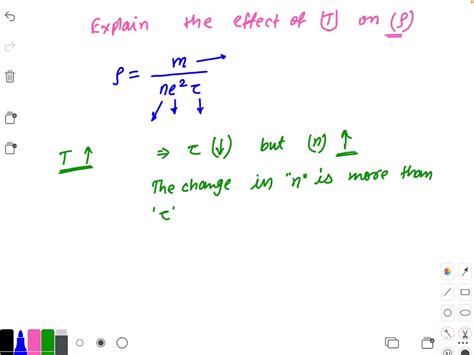 Explain the effect of (T) on (ρ)
ρ = m / ne²τ
T ↑ ⇒ τ (↓) but (n) ↑
The change in "n" is more than
'τ'